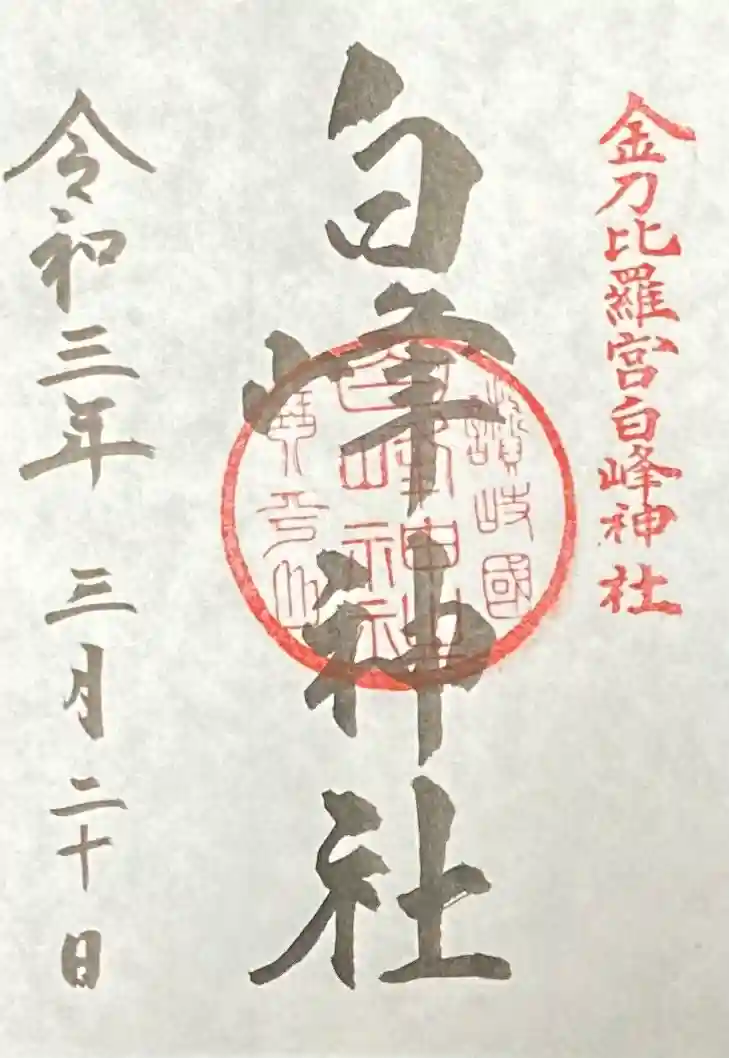 金刀比羅宮白峰神社
白峰神社
讃岐國
白峰神社
琴平山
令和三年 三月二十日